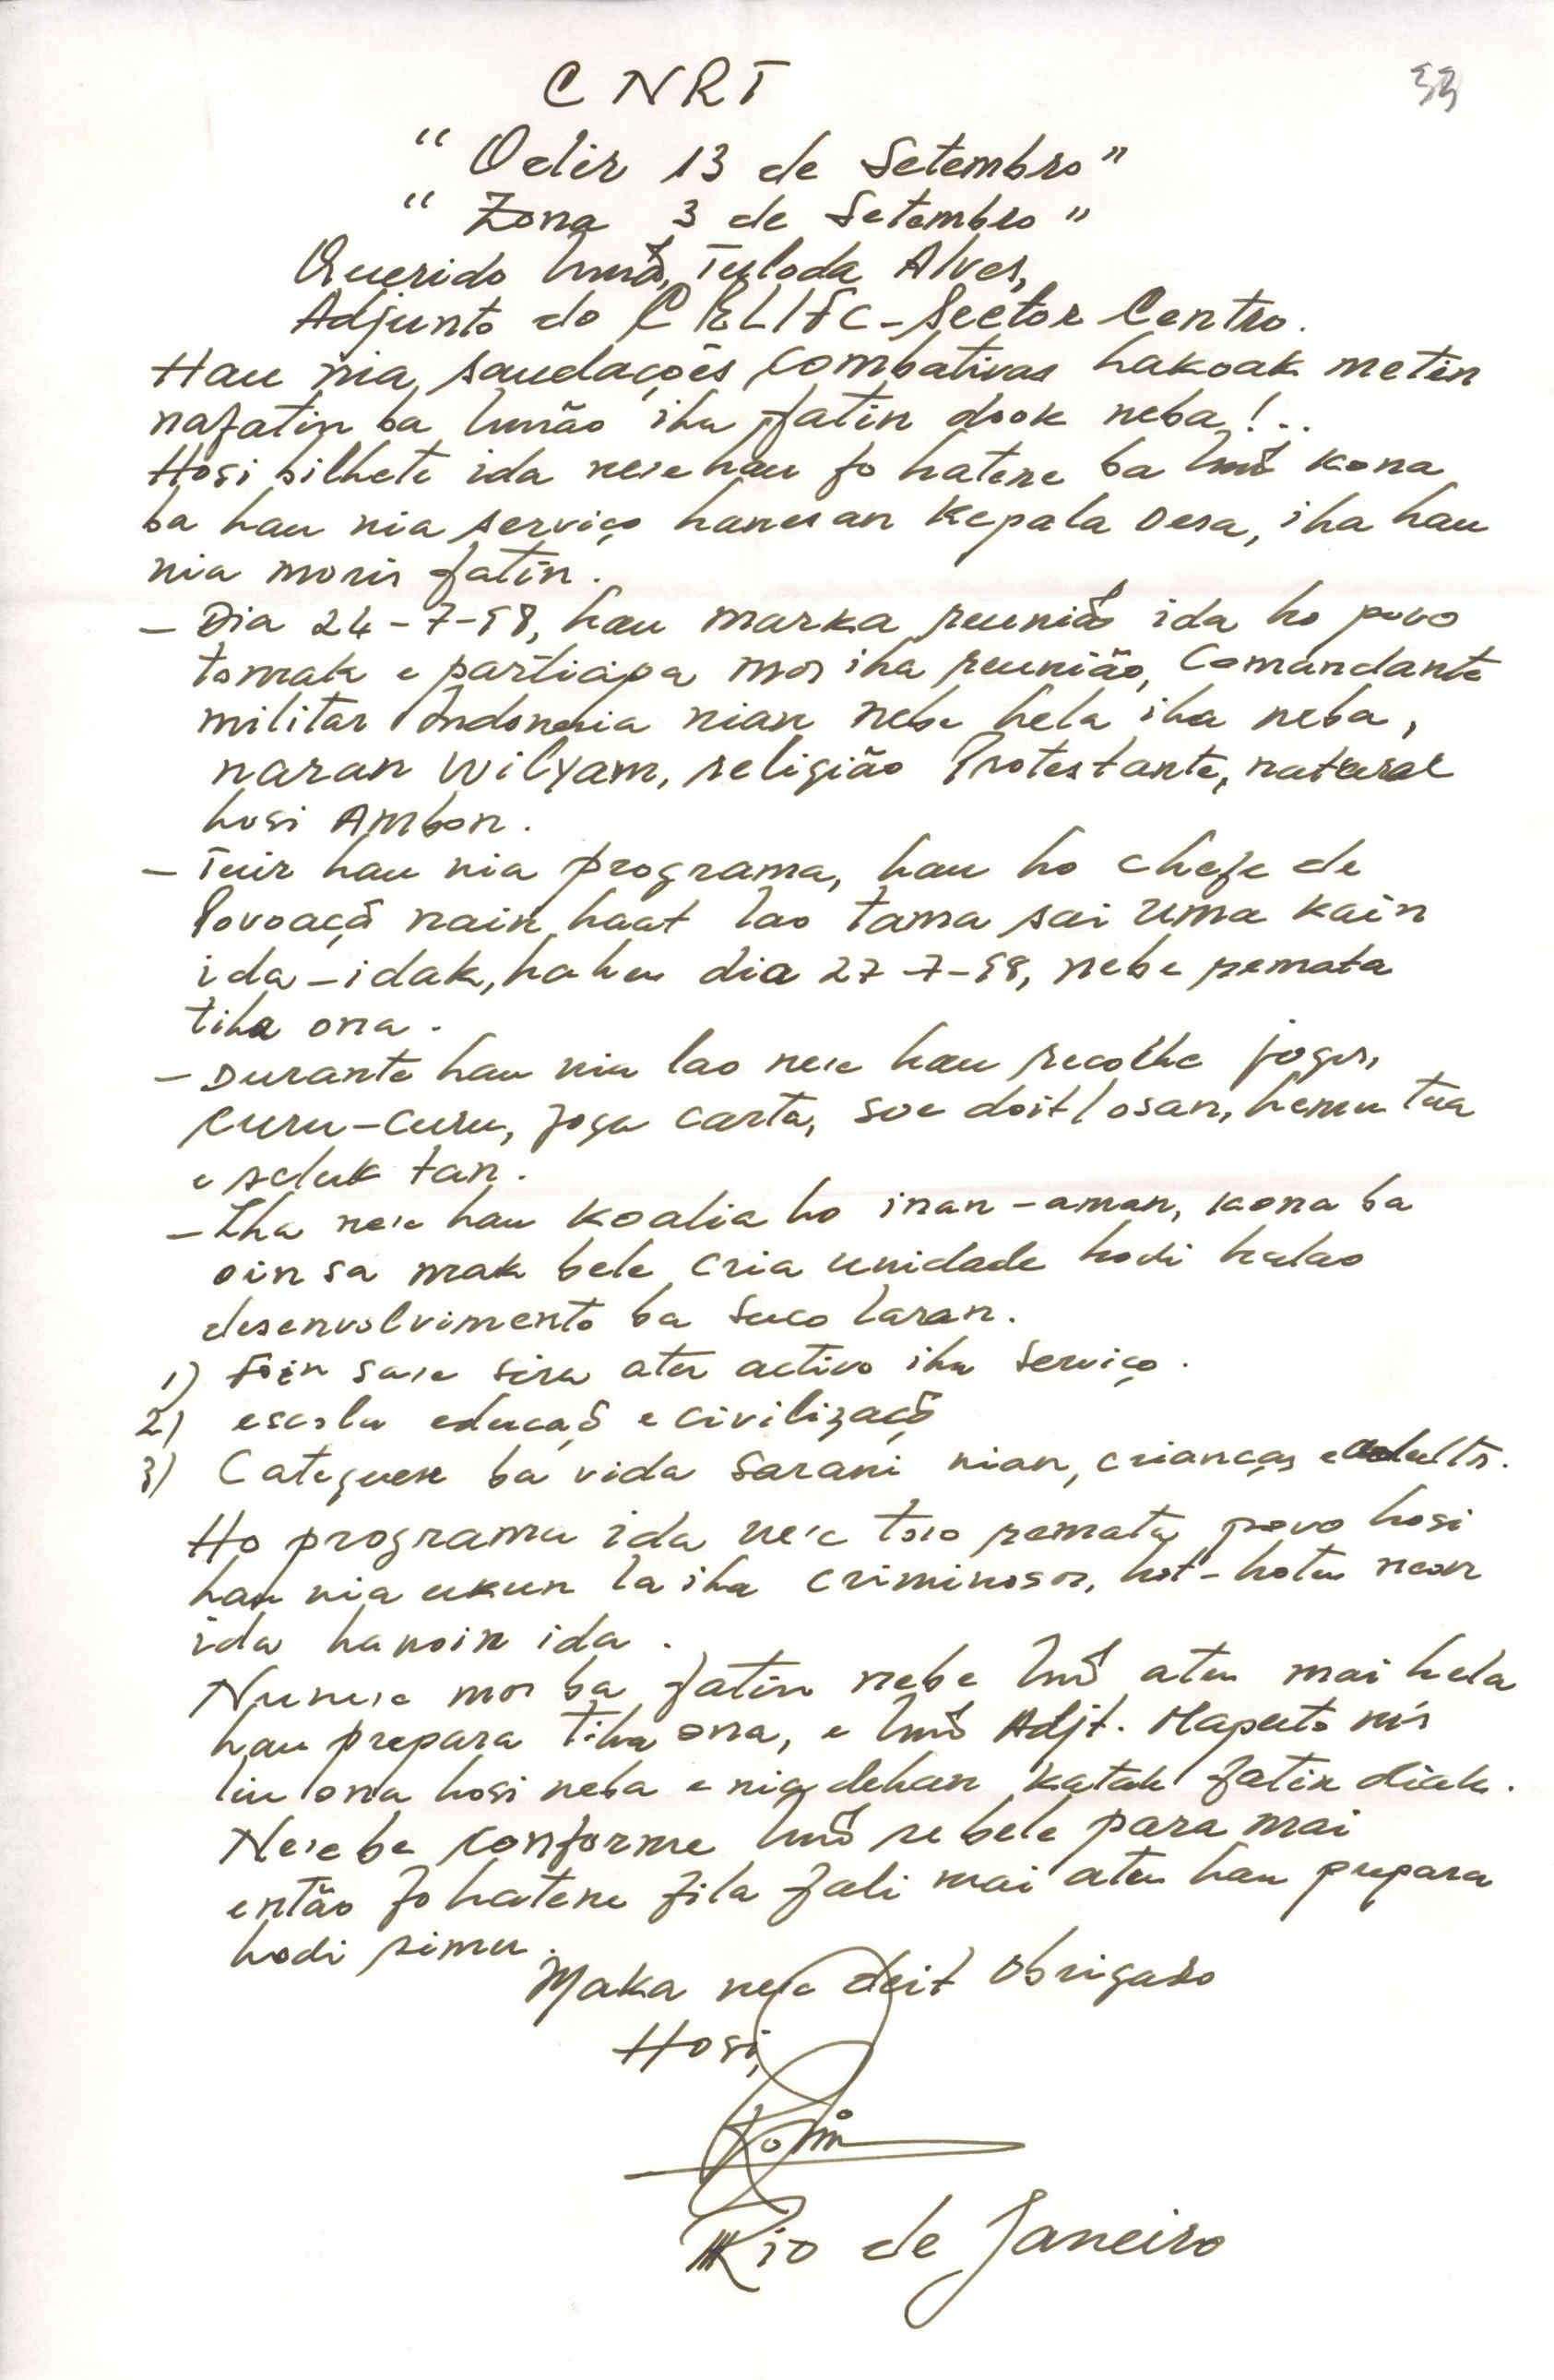 CNRT
"Odir 13 de Setembro"
"Zona 3 de Setembro"
Querido Irmão, Tuloda Alves,
Adjunto do CRLIFC - Sector Centro.
Hau nia, saudações combativas hakoak metin
nafatin ba Irmão iha fatin dook neba!..
Hosi bilhete ida ne'e hau fo hatene ba Irmão kona
ba hau nia serviço hanesan Kepala Desa, iha hau
nia moris fatin.
- Dia 24-7-98, hau marka reunião ida ho povo
tomak e participa mos iha reunião, Comandante
militar Indonesia nian nebe hela iha neba,
naran Wilyam, religião Protestante, natural
hosi Ambon.
- Tuir hau nia programa, hau ho chefe de
Povoaçã nain haat lao tama sai uma kain
ida-idak, hahu dia 27-7-98, nebe remata
tiha ona.
- Durante hau nia lao ne'e hau recolhe jogos,
curu-curu, joga carta, soe doit osan, hemu tua
e seluk tan.
- Iha ne'e hau koalia ho inan-aman, kona ba
oin sa mak bele cria unidade hodi halao
desenvolvimento ba Suco laran.
1) Foin sa'e sira atu activo iha serviço.
2) escola educaçã e civilizaçã
3) Catequese ba vida sarani nian, crianças e adultos.
Ho programa ida ne'e to'o remata povo hosi
hau nia ukun la iha criminosos, hot-hotu neon
ida hanoin ida.
Nune'e mos ba fatin nebe Irmão atu mai hela
hau prepara tiha ona, e Irmão Adjt. Maputo mos
liu ona hosi neba e nia dehan katak fatin diak.
Ne'ebe conforme Irmão se bele para mai
então fo hatene fila fali mai atu hau prepara
hodi simu.
Maka ne'e deit obrigado
Hosi,
Rio de Janeiro